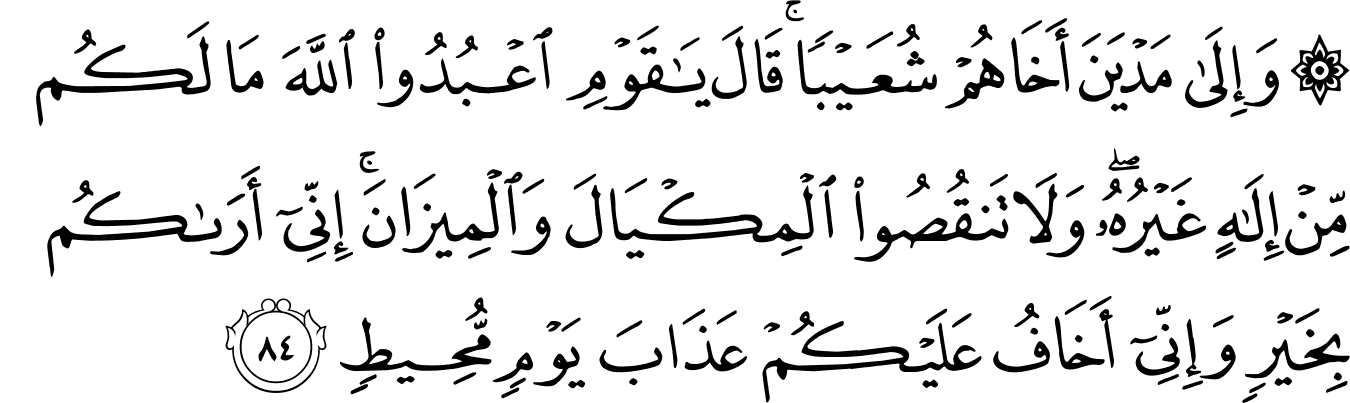 ۞ وَإِلَىٰ مَدْيَنَ أَخَاهُمْ شُعَيْبًا ۚ قَالَ يَـٰقَوْمِ ٱعْبُدُوا۟ ٱللَّهَ مَا لَكُم
مِّنْ إِلَـٰهٍ غَيْرُهُۥ ۖ وَلَا تَنقُصُوا۟ ٱلْمِكْيَالَ وَٱلْمِيزَانَ ۚ إِنِّىٓ أَرَىٰكُم
بِخَيْرٍ وَإِنِّىٓ أَخَافُ عَلَيْكُمْ عَذَابَ يَوْمٍ مُّحِيطٍ ٨٤